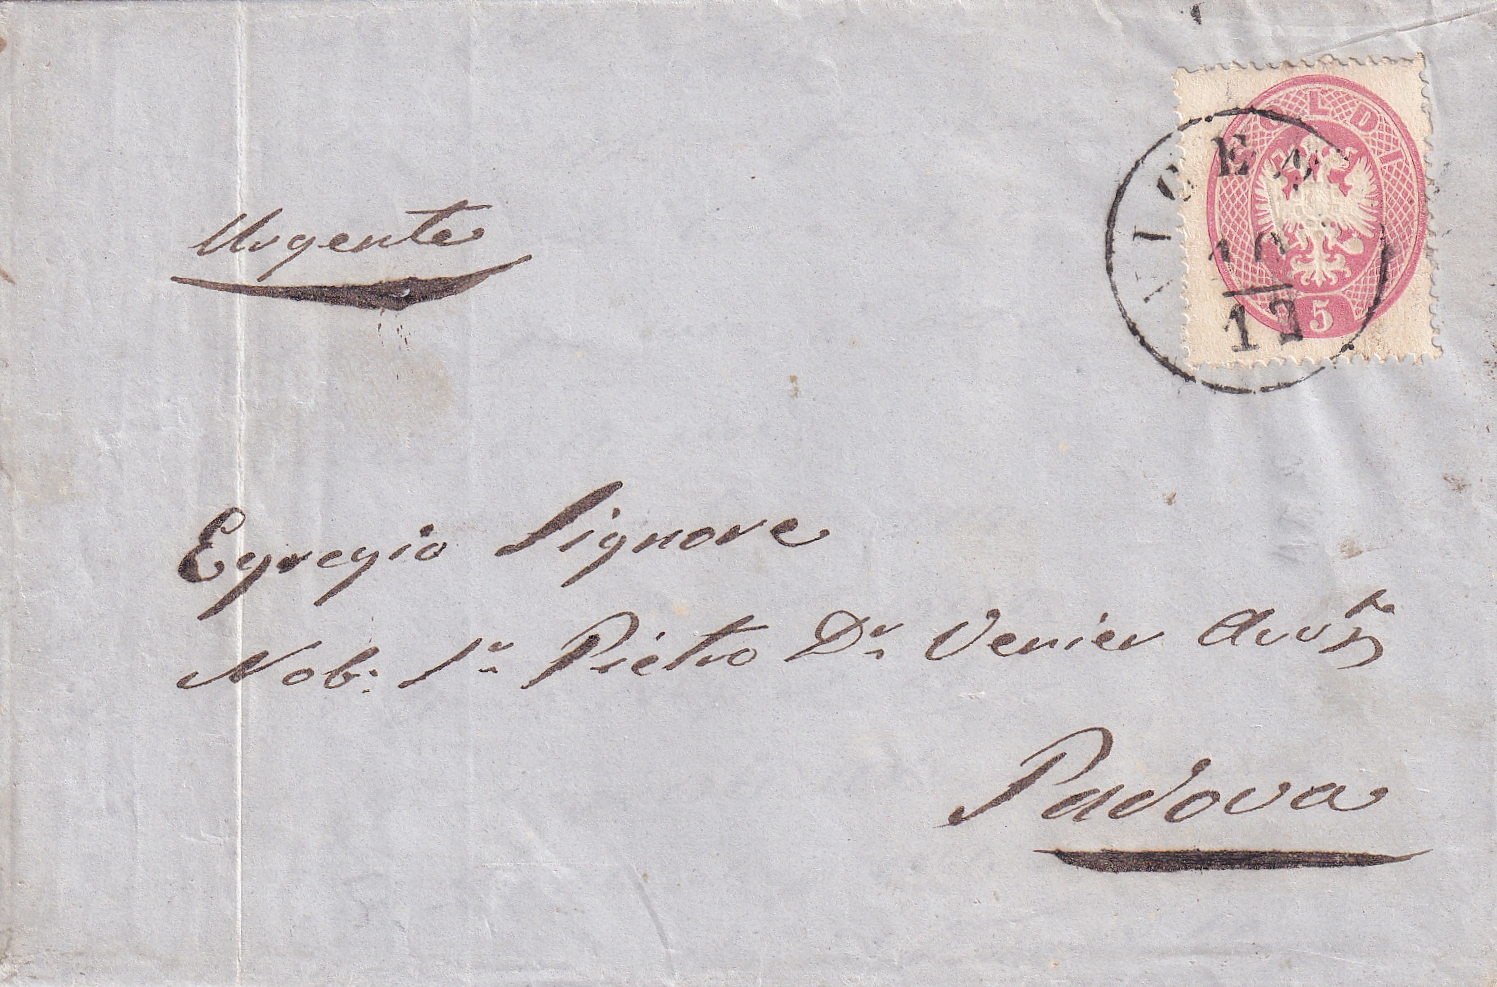 SOLDI
5
VICENZA
10
12
Urgente
Egregio Signore
Nob: Sr. Pietro Dr. Venier Avvto
Padova